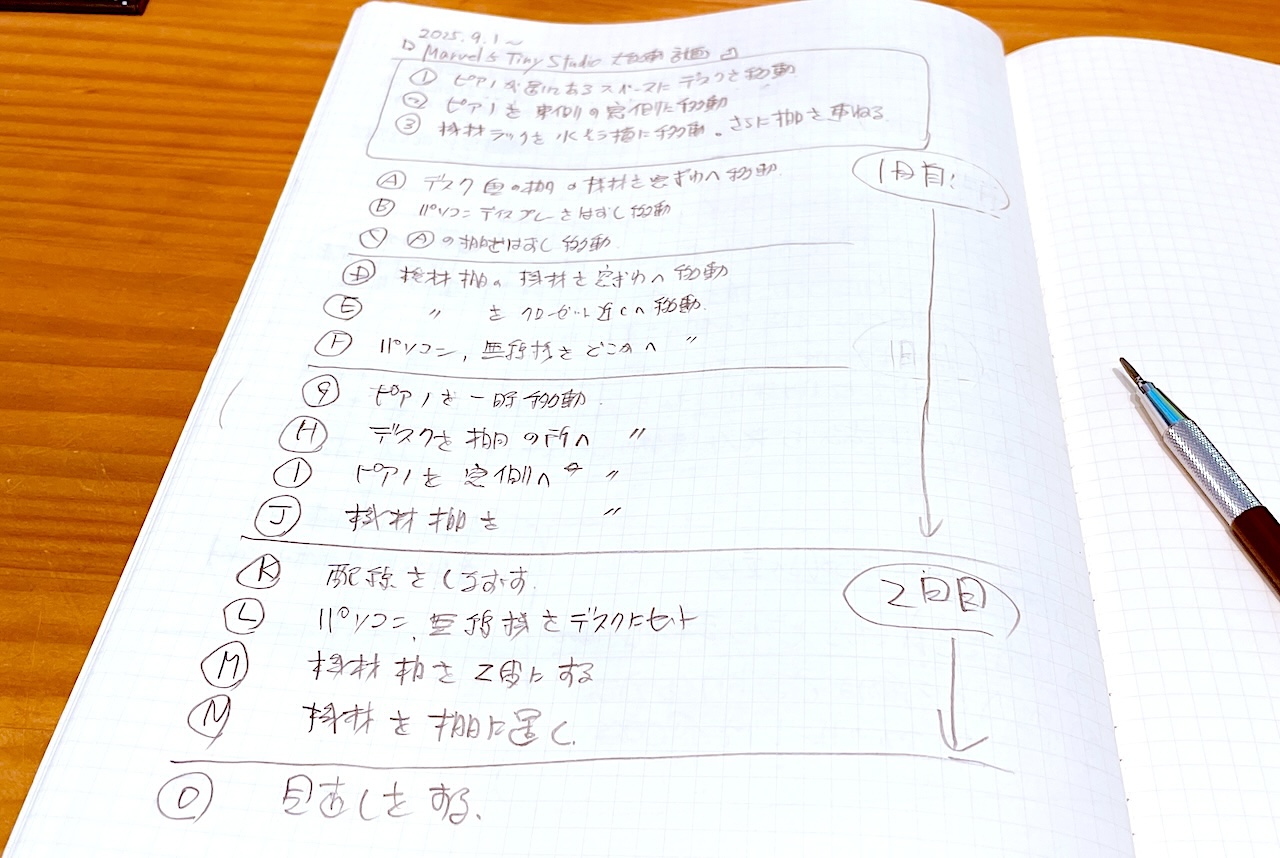 2025.9.1〜
Marvel's Tiny Studio 計画
① ピアノが置いてあるスペースにデスクを移動
② ピアノを東側の窓側に移動
③ 機材ラックを 横に移動。さらに棚を重ねる
1日目!
Ⓐ デスク の棚の機材を窓ぎわへ移動.
Ⓑ パソコンディスプレをはずし移動
Ⓒ Ⓐの棚をはずし移動.
Ⓓ 機材棚の機材を窓ぎわへ移動
Ⓔ 〃 をクローゼット近くへ移動.
Ⓕ パソコン, 無線機をどこかへ 〃
1日
Ⓖ ピアノを一時移動.
Ⓗ デスクを棚の所へ 〃
Ⓘ ピアノを窓側へ 〃
Ⓙ 機材棚を 〃
Ⓚ 配線をしなおす.
2日目
Ⓛ パソコン, 無線機をデスクにセット
Ⓜ 機材棚を2段にする
Ⓝ 機材を棚に置く.
Ⓞ 見直しをする.